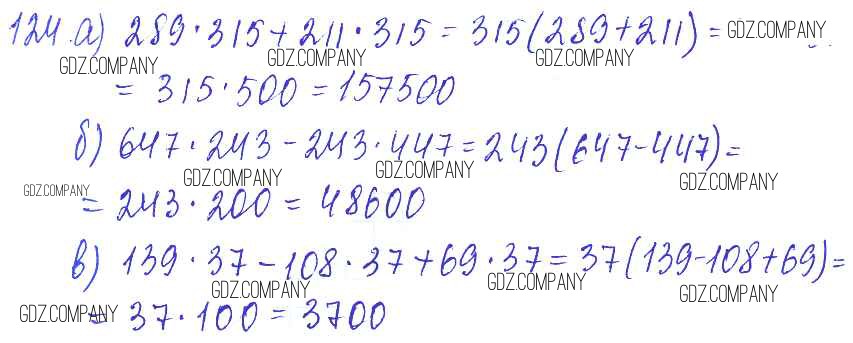 124.а) 289·315+211·315=315(289+211)= GDZ.COMPANY
GDZ.COMPANY GDZ.COMPANY GDZ.COMPANY
= 315·500=157500
б) 647·243-243·447=243(647-447)=
GDZ.COMPANY GDZ.COMPANY GDZ.COMPANY
GDZ.COMPANY = 243·200=48600
в) 139·37-108·37+69·37=37(139-108+69)=
GDZ.COMPANY GDZ.COMPANY GDZ.COMPANY
GDZ.COMPANY = 37·100=3700